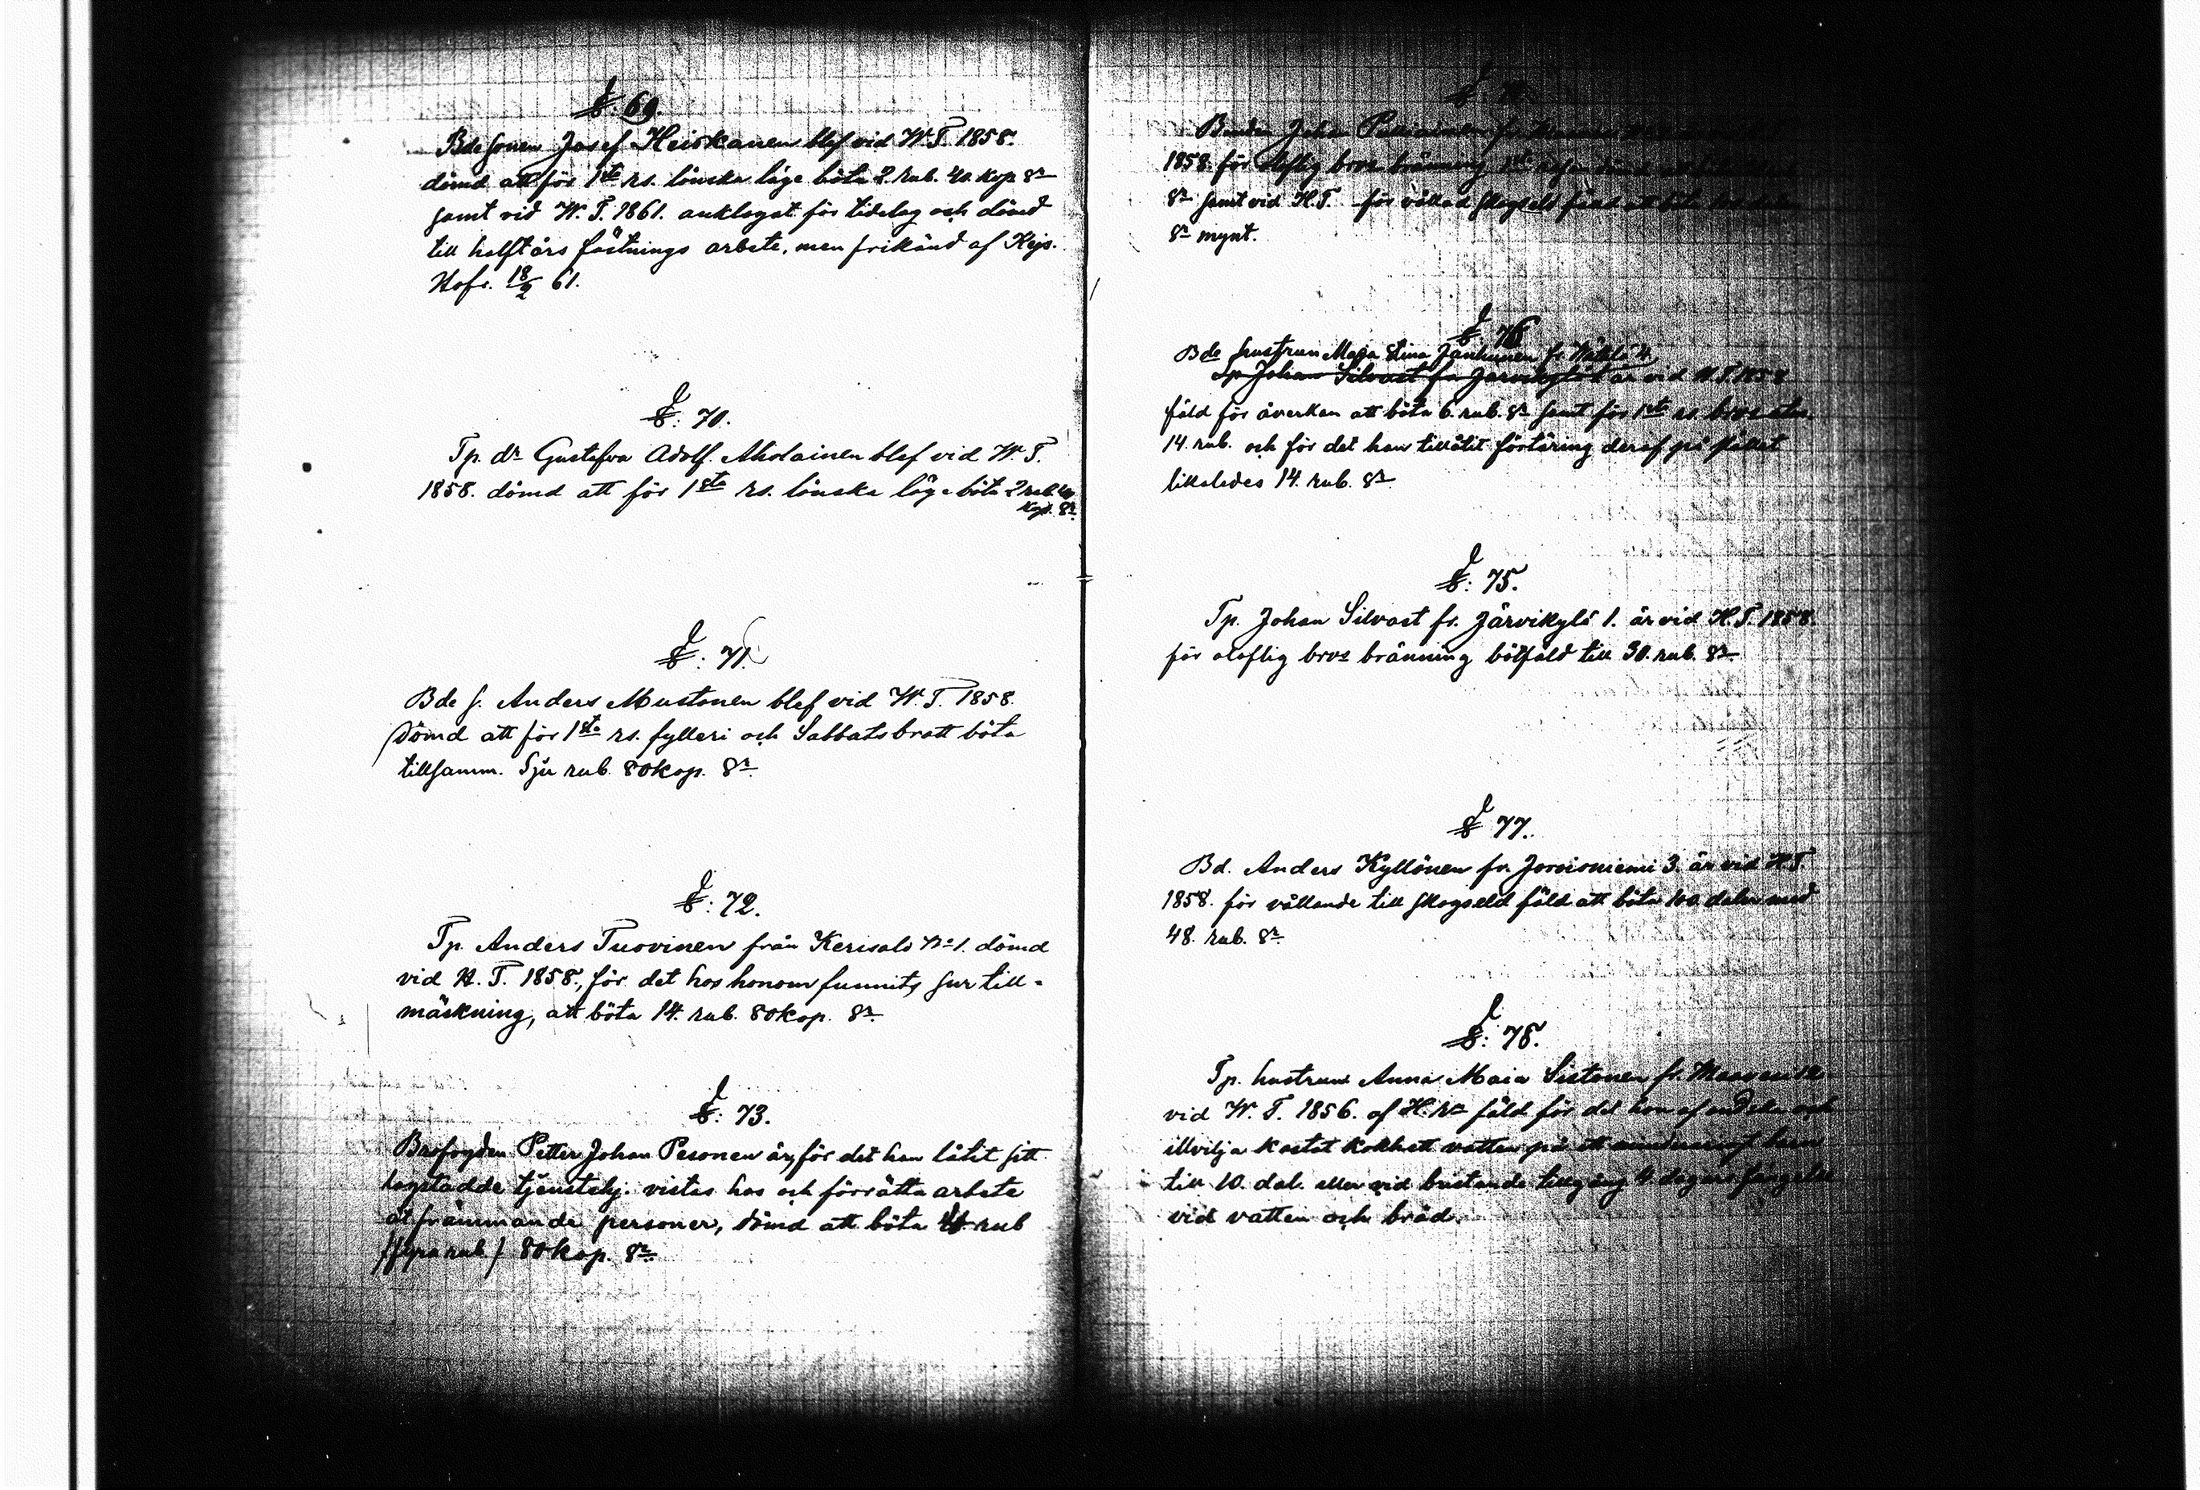 §. 69.
Bdesonen Josef Heiskanen blef vid W. T. 1858.
dömd att för 1sta rs. lönska läge böta 2 rub. 40 kop Sr
samt vid W. T. 1861. anklagat för tidelag och dömd
till halft års fästnings arbete, men frikänd af Kejs.
Hofr. 18/2 61.
§: 70.
Tp. dr Gustafva Adolf. Aholainen blef vid W. T.
1858. dömd att för 1sta rs. lönska läge böta 2 rub. 40
kop. Sr.
§: 71.
Bde s. Anders Mustonen blef vid W. T. 1858.
dömd att för 1sta rs. fylleri och Sabbatsbrott böta
tillsamm. Sju rub. 80 kop. Sr.
§: 72.
Tp. Anders Tuovinen från Kerisalo No 1. dömd
vid H. T. 1858, för det hos honom funnits sur till-
mäskning, att böta 14. rub. 80 kop. Sr.
§: 73.
Petter Johan Pesonen är, för det han låtit sitt
tjenstehj. vistas hos och förrätta arbete
åt främmande personer, dömd att böta 4 rub
/fyra rub/ 80 kop. Sr.
Bonden Johan
1858. för olaflig brvs bränning
Sr samt vid H. T. för vållad skogseld fäld att böta
Sr mynt.
§ 76
Bde hustrun Maja Stina Janhunen fr.
Tp Johan Silvast fr Järvikylä 1 är vid H. T. 1858
fäld för åverkan att böta 6. rub. Sr samt för 1sta rs.
14. rub. och för det han tillåtit förtäring deraf på stället
likaledes 14. rub. Sr.
§: 75.
Tp. Johan Silvast fr. Järvikylä 1. är vid H. T. 1858.
för olaflig brvs bränning bötfäld till 30. rub. Sr.
§ 77.
Bd. Anders Kyllönen fr. Joroisniemi 3. är vid H. T.
1858. för vållande till skogseld fäld att böta 100 daler med
48. rub. Sr.
§: 78.
Tp. hustrun Anna Maia Sistonen fr. Maavesi 12
vid W. T. 1856. af H. Rn fäld för det hon af och
illvilja kastat kokhett vatten på ett
till 10. dal. eller vid bristande tillgång 4 dagars fängelse
vid vatten och bröd.